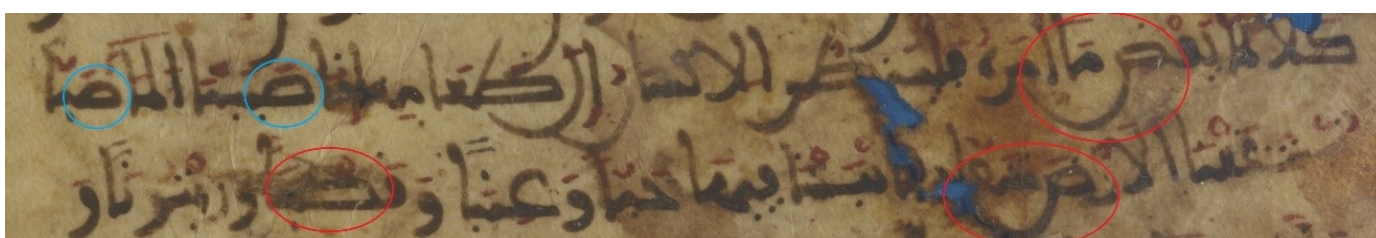 كلا لما يقض ما امره فلينظر الانسان الى طعامه انا صببنا الما صبا
ثم شققنا الارض شقا فانبتنا فيها حبا وعنبا وقضبا وزيتونا و